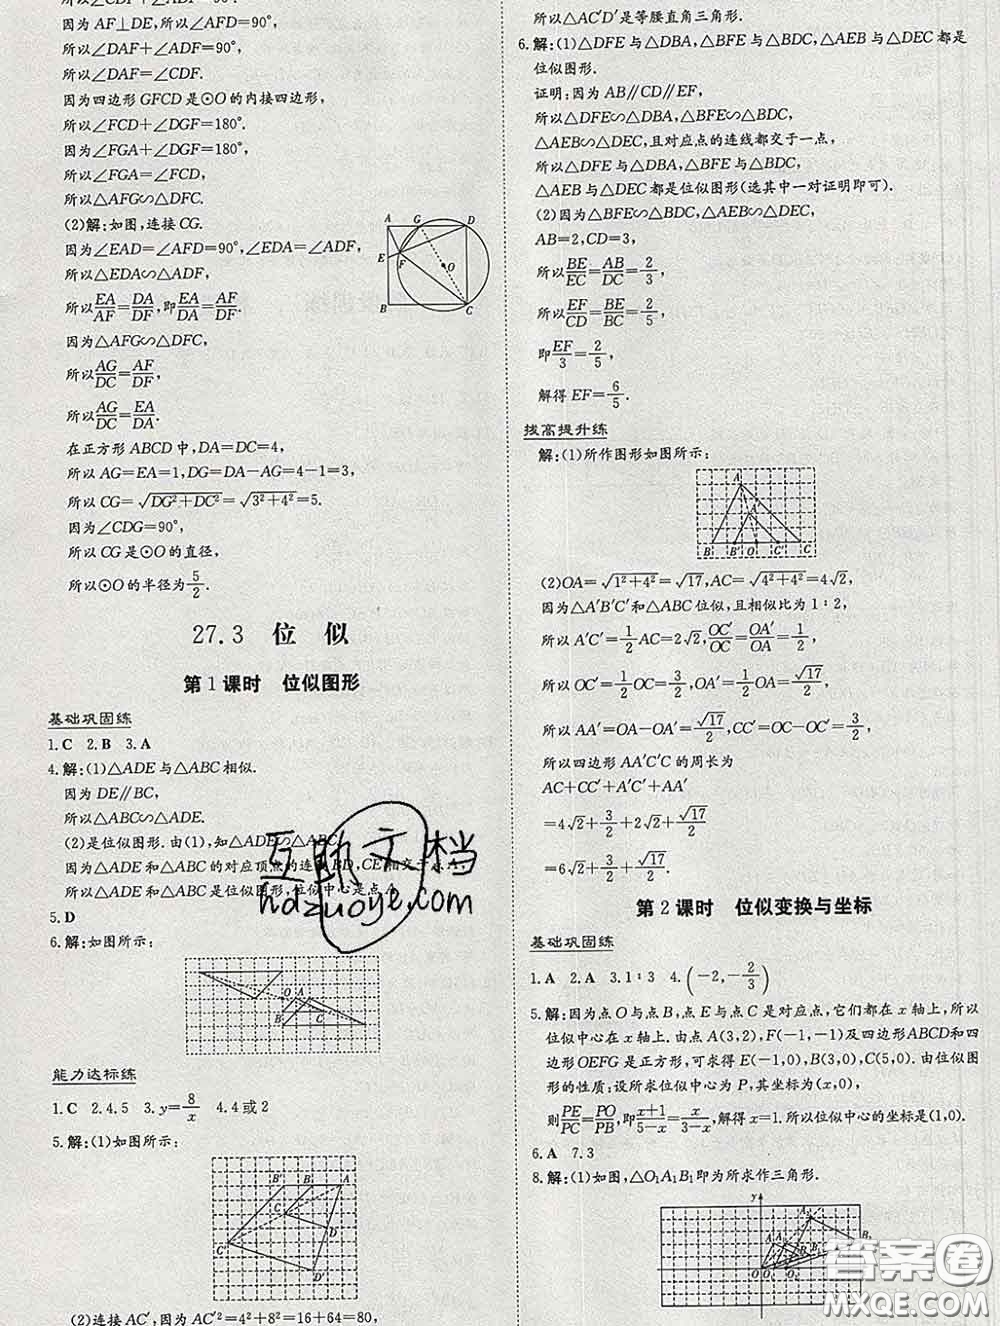 因为 AF⊥DE,所以∠AFD=90°,
所以∠DAF+∠ADF=90°,
所以∠DAF=∠CDF.
因为四边形 GFCD 是⊙O 的内接四边形,
所以∠FCD+∠DGF=180°.
因为∠FGA+∠DGF=180°,
所以∠FGA=∠FCD,
所以△AFG∽△DFC.
(2)解:如图,连接 CG.
因为∠EAD=∠AFD=90°,∠EDA=∠ADF,
所以△EDA∽△ADF,
所以EA/AF=DA/DF,即EA/DA=AF/DF.
因为△AFG∽△DFC,
所以AG/DC=AF/DF,
所以AG/DC=EA/DA.
在正方形 ABCD 中,DA=DC=4,
所以 AG=EA=1,DG=DA-AG=4-1=3,
所以 CG=√(DG²+DC²)=√(3²+4²)=5.
因为∠CDG=90°,
所以 CG 是⊙O 的直径,
所以⊙O 的半径为5/2.
A G D
E F O
B C
27.3 位 似
第 1 课时 位似图形
基础巩固练
1.C 2.B 3.A
4.解:(1)△ADE 与△ABC 相似.
因为 DE∥BC,
所以△ABC∽△ADE.
(2)是位似图形.由(1),知△ADE∽△ABC,
因为△ADE 和△ABC 的对应顶点的连线BD,CE 相交于点 A,
所以△ADE 和△ABC 是位似图形,位似中心是点 A.
5.D
6.解:如图所示:
O A
B C
能力达标练
1.C 2.4.5 3.y=8/x 4.4 或 2
5.解:(1)如图所示:
B′ B A
C
D
C′
D′
(2)连接 AC′,因为 AC′²=4²+8²=16+64=80,
所以△AC′D′是等腰直角三角形.
6.解:(1)△DFE 与△DBA,△BFE 与△BDC,△AEB 与△DEC 都是
位似图形.
证明:因为 AB∥CD∥EF,
所以△DFE∽△DBA,△BFE∽△BDC,
△AEB∽△DEC,且对应点的连线都交于一点,
所以△DFE 与△DBA,△BFE 与△BDC,
△AEB 与△DEC 都是位似图形(选其中一对证明即可).
(2)因为△BFE∽△BDC,△AEB∽△DEC,
AB=2,CD=3,
所以BE/EC=AB/DC=2/3,
所以EF/CD=BE/BC=2/5,
即EF/3=2/5,
解得 EF=6/5.
拔高提升练
解:(1)所作图形如图所示:
A
A′
B B′ O C′ C
(2)OA=√(1²+4²)=√17,AC=√(4²+4²)=4√2,
因为△A′B′C′和△ABC 位似,且相似比为 1∶2,
所以 A′C′=1/2AC=2√2,OC′/OC=OA′/OA=1/2,
所以 OC′=1/2OC=3/2,OA′=1/2OA=√17/2,
所以 AA′=OA-OA′=√17/2,CC′=OC-OC′=3/2,
所以四边形 AA′C′C 的周长为
AC+CC′+A′C′+AA′
=4√2+3/2+2√2+√17/2
=6√2+3/2+√17/2.
第 2 课时 位似变换与坐标
基础巩固练
1.A 2.A 3.1∶3 4.(-2,-2/3)
5.解:因为点 O 与点 B,点 E 与点 C 是对应点,它们都在 x 轴上,所以
位似中心在 x 轴上.由点 A(3,2),F(-1,-1)及四边形ABCD和四
边形 OEFG 是正方形,可求得 E(-1,0),B(3,0),C(5,0).由位似图
形的性质:设所求位似中心为 P,其坐标为(x,0),
则PE/PC=PO/PB,即x+1/5-x=x/3-x,解得 x=1.所以位似中心的坐标是(1,0).
6.A 7.3
8.解:(1)如图,△O₁A₁B₁即为所求作三角形.
互助文档
hdzuoye.com
答案圈
MXQE.COM